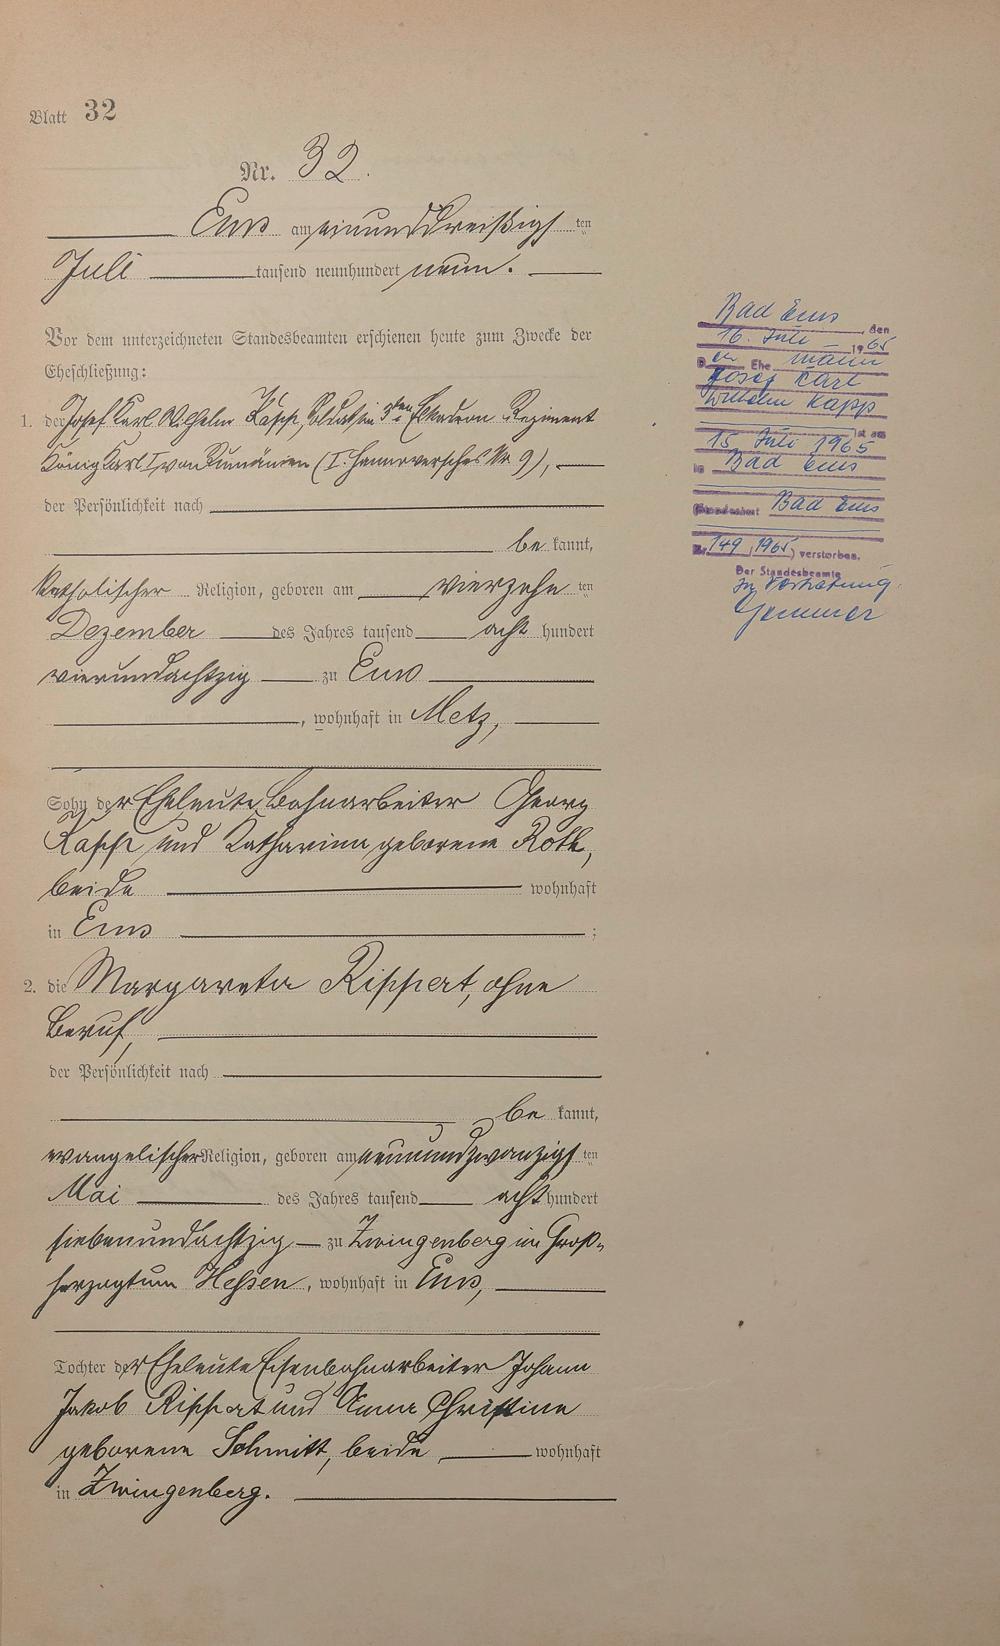 Blatt 32
Nr. 32.
Ems am einunddreißigsten
Juli tausend neunhundert neun.
Vor dem unterzeichneten Standesbeamten erschienen heute zum Zwecke der
Eheschließung:
1. der Josef Karl Wilhelm Kapp, Soldat in 3ten Eskadron Regiment
König Karl I. von Rumänien (I. Hannoversches Nr 9),
der Persönlichkeit nach
be kannt,
katholischer Religion, geboren am vierzehn ten
Dezember des Jahres tausend acht hundert
vierundachtzig zu Ems
, wohnhaft in Metz,
Sohn der Eheleute Bahnarbeiter Georg
Kapp und Katharina geborene Roth,
beide wohnhaft
in Ems ;
2. die Margareta Rippert, ohne
Beruf,
der Persönlichkeit nach
be kannt,
evangelischer Religion, geboren am neunundzwanzigsten
Mai des Jahres tausend acht hundert
siebenundachtzig zu Zwingenberg im Groß-
herzogtum Hessen, wohnhaft in Ems,
Tochter der Eheleute Eisenbahnarbeiter Johann
Jakob Rippert und Anna Christine
geborene Schmitt, beide wohnhaft
in Zwingenberg.
Bad Ems, den
16. Juli 1965
Der Ehe mann
Josef Karl
Wilhelm Kapp
ist am
15. Juli 1965
in Bad Ems
(Standesamt Bad Ems
Nr. 149, 1965) verstorben.
Der Standesbeamte
In Vertretung